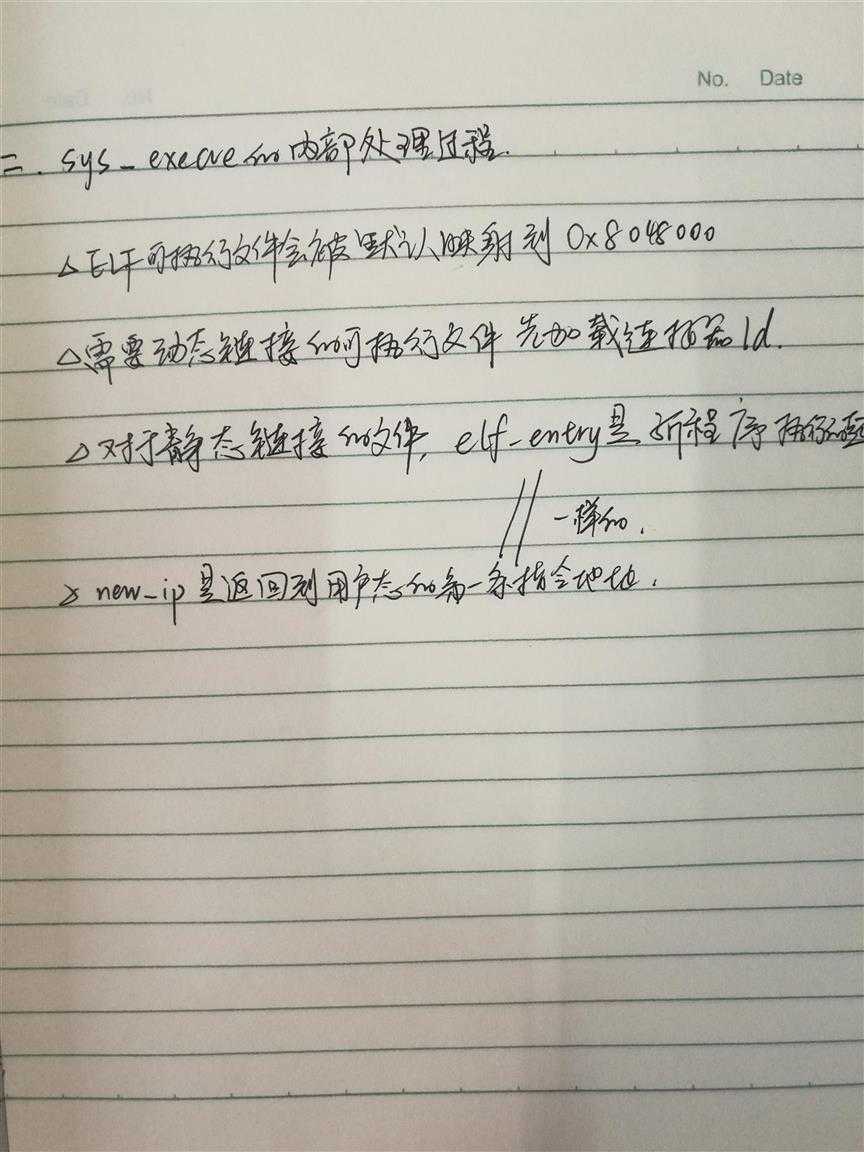 No. Date
二. sys_execve的内部处理过程.
△ ELF可执行文件会被默认映射到0x8048000
△ 需要动态链接的可执行文件先加载连接器ld.
△ 对于静态链接的文件, elf_entry是新程序执行的
一样的.
new_ip是返回到用户态的第一条指令地址.